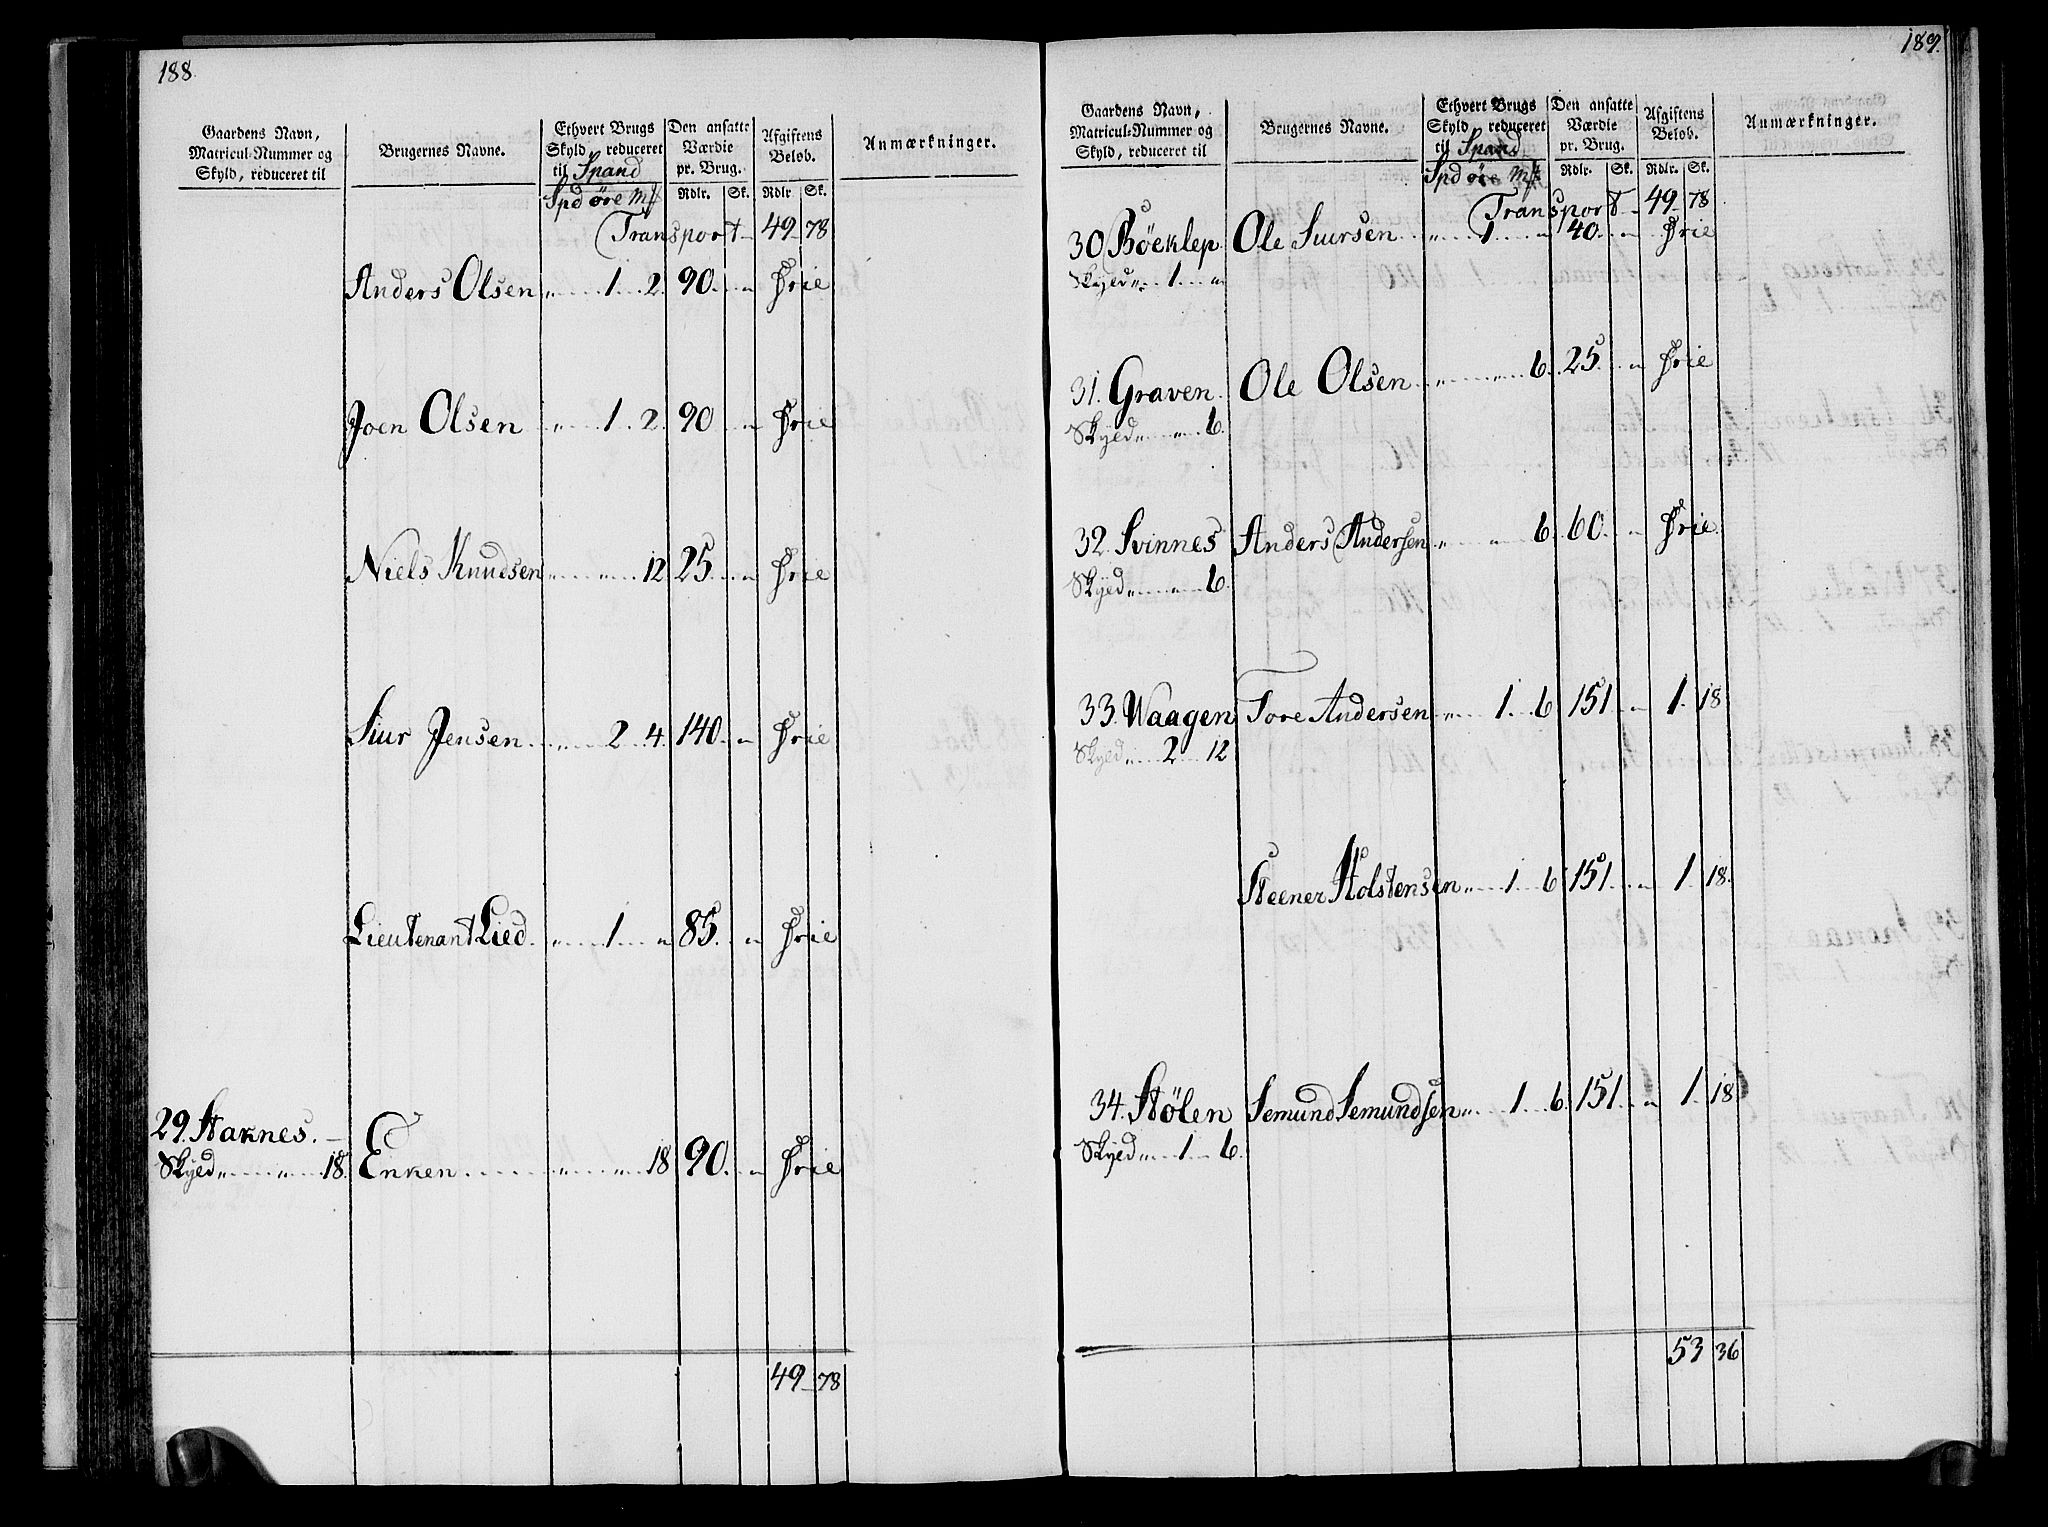 188.
Gaardens Navn, Matricul-Nummer og Skyld, reduceret til
Brugernes Navne.
Ethvert Brugs Skyld, reduceret til Spand
Spd öre Mk
Den ansatte Værdie pr. Brug.
Rdlr. Sk.
Afgiftens Beløb.
Rdlr Sk.
Anmærkninger.
Transport 49 78
Anders Olsen „ 1 2 90 „ Frie
Joen Olsen „ 1 2 90 „ Frie
Niels Knudsen „ „ 12 25 „ Frie
Siur Jensen „ 2 4 140 „ Frie
Lieutenant Lied „ 1 „ 85 „ Frie
29. Staknes.
Skyld „ „ 18. Enken „ „ 18 90 „ Frie
49 78
189.
Gaardens Navn, Matricul-Nummer og Skyld, reduceret til
Brugernes Navne.
Ethvert Brugs Skyld, reduceret til Spand
Spd öre Mk
Den ansatte Værdie pr. Brug.
Rdlr. Sk.
Afgiftens Beløb.
Rdlr. Sk.
Anmærkninger.
Transport 49 78
30 Böeklep Ole Siursen „ 1 „ 40 „ Frie
Skyld „ 1 „
31. Graven. Ole Olsen „ „ 6. 25 „ Frie
Skyld „ „ 6.
32. Svinnes Anders Andersen „ „ 6 60 „ Frie
Skyld „ „ 6.
33. Waagen Tore Andersen „ 1 6 151 „ 1 18
Skyld „ 2 12
Steener Holstensen „ 1 6 151 „ 1 18.
34. Stölen Semund Semundsen „ 1 6. 151 „ 1 18
Skyld „ 1 6.
53 36